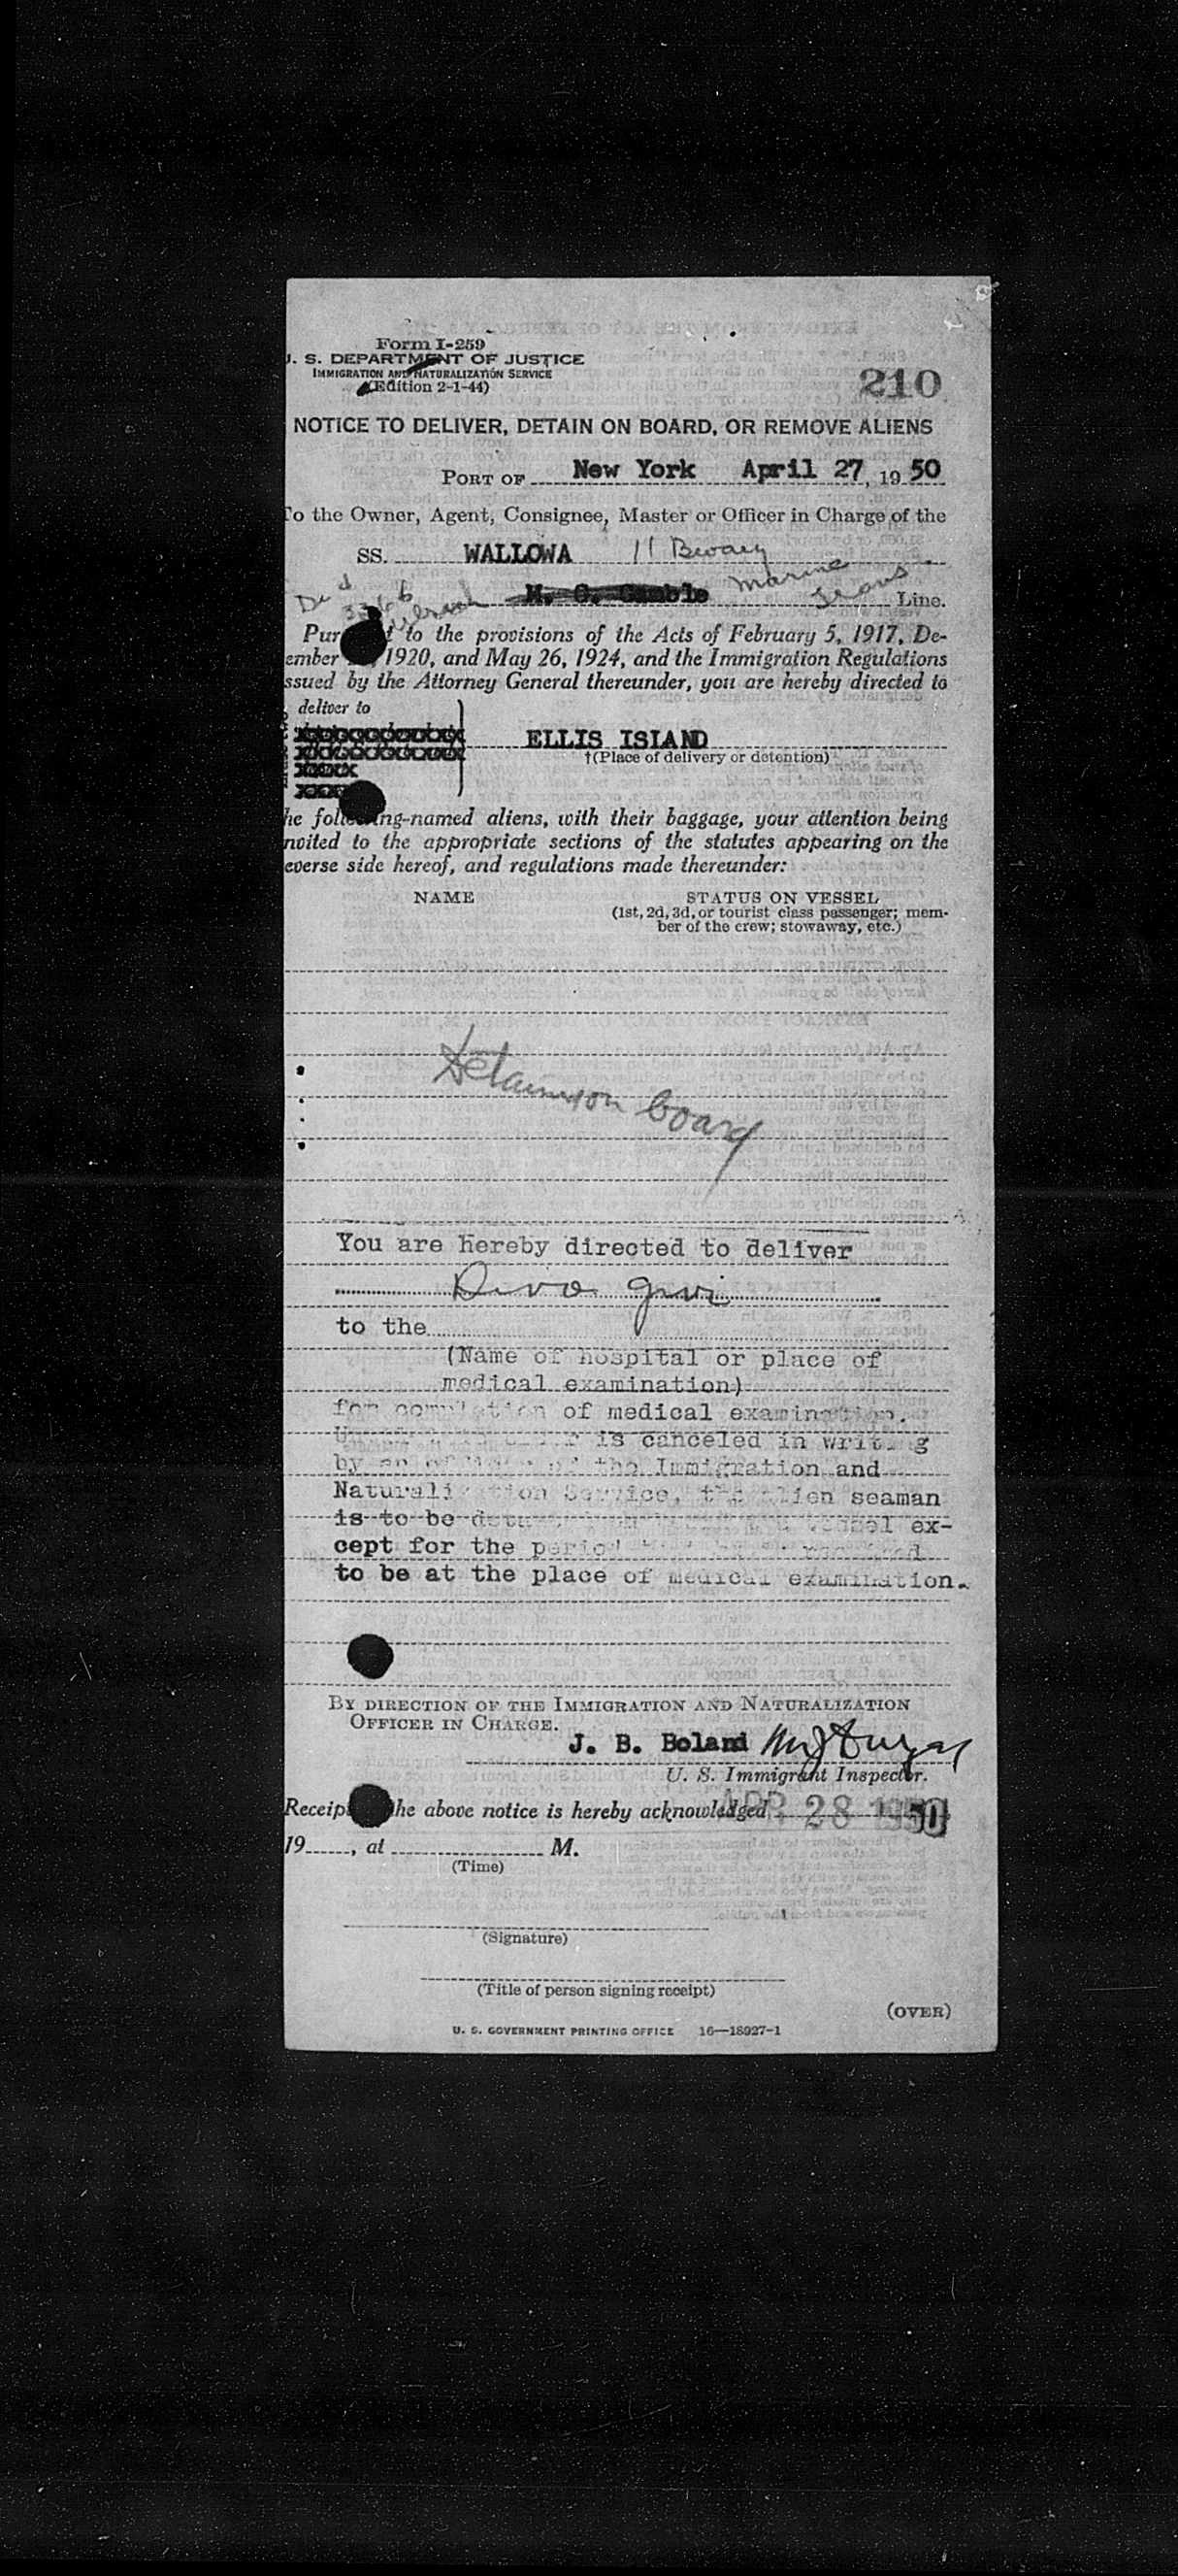 Form I-259
U. S. DEPARTMENT OF JUSTICE
IMMIGRATION AND NATURALIZATION SERVICE
(Edition 2-1-44)
210
NOTICE TO DELIVER, DETAIN ON BOARD, OR REMOVE ALIENS
PORT OF New York April 27, 19 50
To the Owner, Agent, Consignee, Master or Officer in Charge of the
SS. WALLOWA 11 Bway
M. C. Gamble Marine Trans Line.
3266
Pur to the provisions of the Acts of February 5, 1917, De-
ember 1920, and May 26, 1924, and the Immigration Regulations
ssued by the Attorney General thereunder, you are hereby directed to
deliver to
ELLIS ISLAND
†(Place of delivery or detention)
he following-named aliens, with their baggage, your attention being
nvited to the appropriate sections of the statutes appearing on the
everse side hereof, and regulations made thereunder:
NAME STATUS ON VESSEL
(1st, 2d, 3d, or tourist class passenger; mem-
ber of the crew; stowaway, etc.)
Detain on board
You are hereby directed to deliver
to the
(Name of hospital or place of
medical examination)
for completion of medical examination.
is canceled in writing
by an officer of the Immigration and
Naturalization Service, the alien seaman
is to be vessel ex-
cept for the period
to be at the place of medical examination.
BY DIRECTION OF THE IMMIGRATION AND NATURALIZATION
OFFICER IN CHARGE.
J. B. Boland
U. S. Immigrant Inspector.
Receipt the above notice is hereby acknowledged APR 28 1950
19......, at M.
(Time)
(Signature)
(Title of person signing receipt)
(OVER)
U. S. GOVERNMENT PRINTING OFFICE 16—18927-1